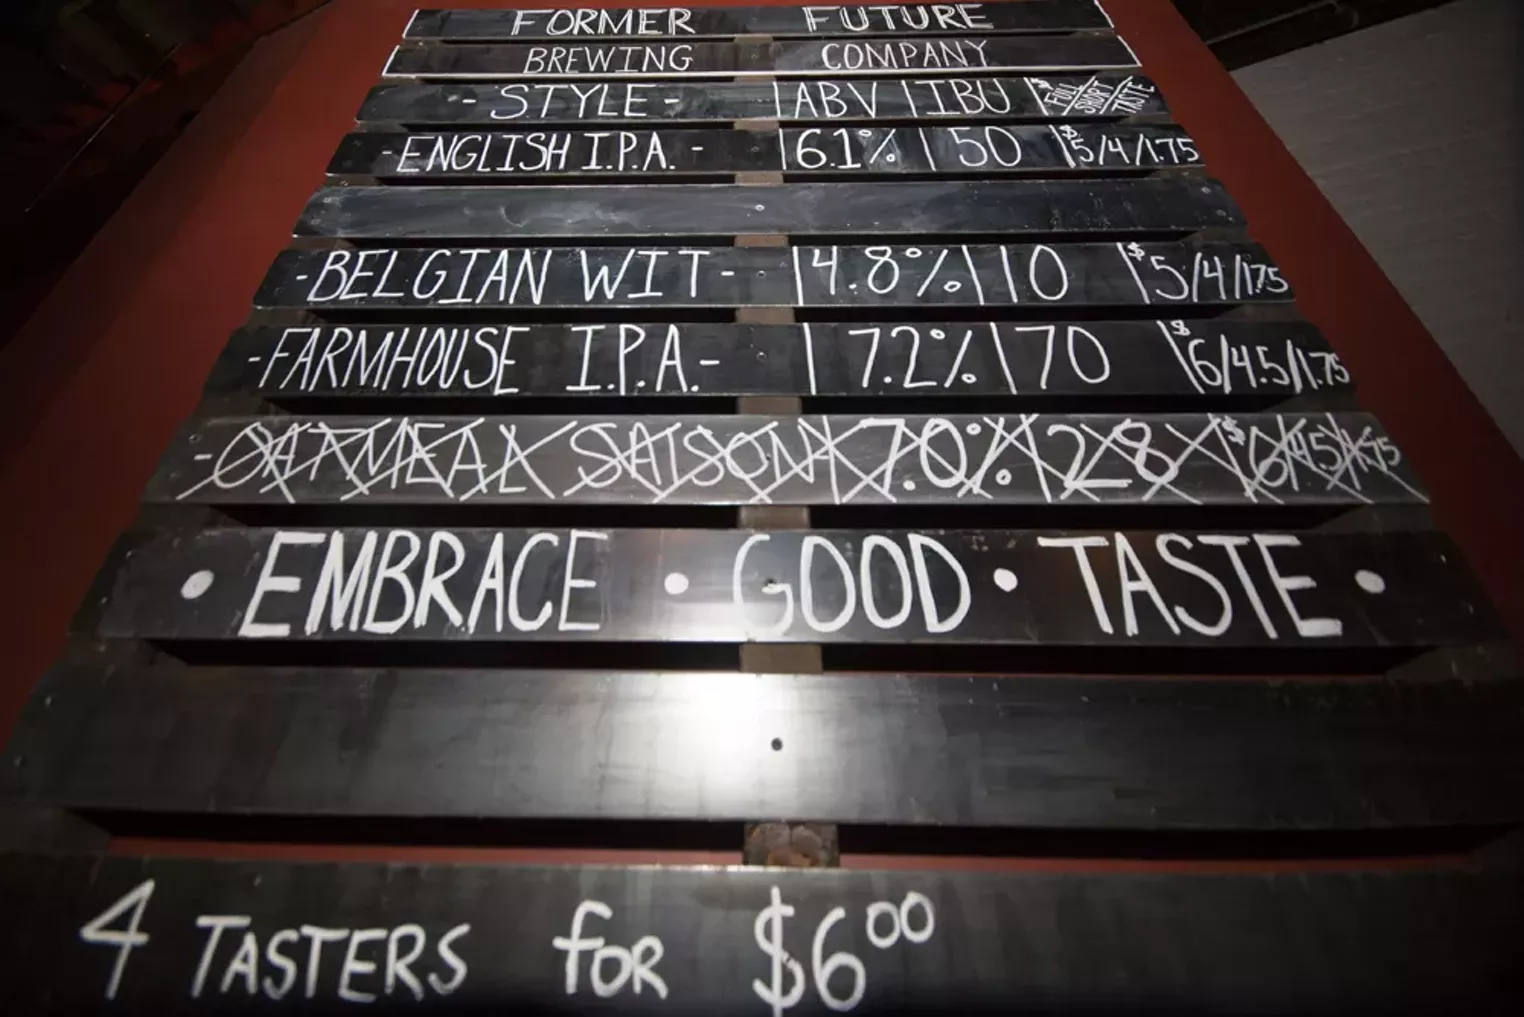 FORMER FUTURE
BREWING COMPANY
- STYLE - | ABV | IBU | $ FULL/SHORT/TASTE
- ENGLISH I.P.A. - | 6.1% | 50 | $5/4/1.75
- BELGIAN WIT - | 4.8% | 10 | $5/4/1.75
- FARMHOUSE I.P.A. - | 7.2% | 70 | $6/4.5/1.75
- OATMEAL SAISON - | 7.0% | 28 | $6/4.5/1.75
• EMBRACE • GOOD • TASTE •
4 TASTERS for $600